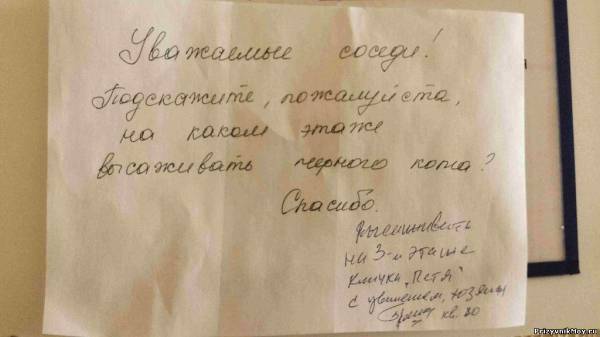 Уважаемые соседи!
Подскажите, пожалуйста,
на каком этаже
высаживать черного кота?
Спасибо.
Высаживать
на 3-м этаже
кличка "Петя"
с уважением, хозяин
кв. 80
PrizyvnikMoy.ru